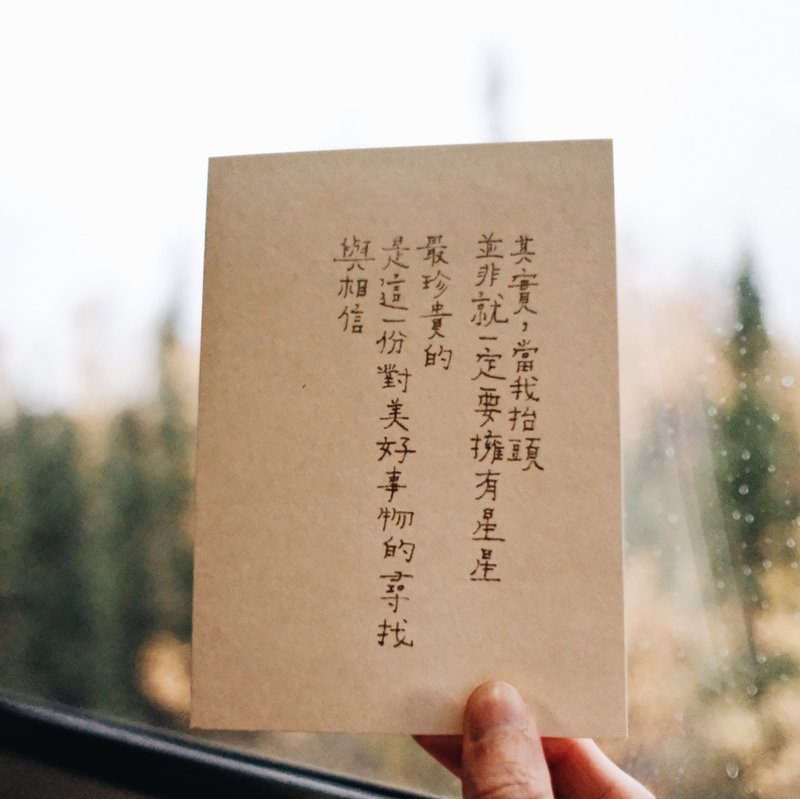 其實，當我抬頭
並非就一定要擁有星星
最珍貴的
是這一份對美好事物的尋找
與相信